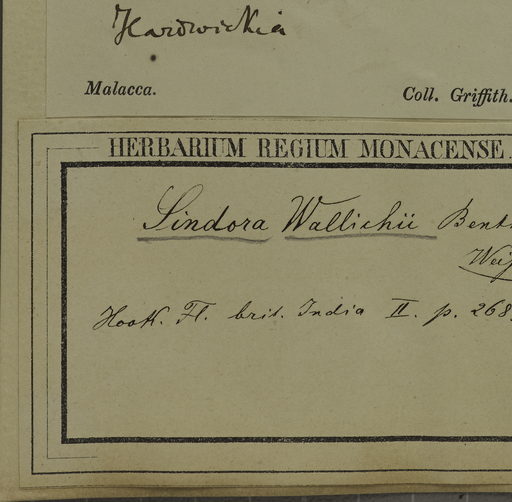 Hardwickia
Malacca. Coll. Griffith.
HERBARIUM REGIUM MONACENSE.
Sindora Wallichii Benth
Hook. Fl. brit. India II. p. 268.